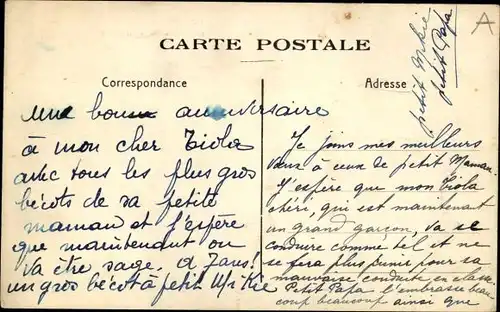 CARTE POSTALE
Correspondance
Adresse
A
petit Mkie
petit Papa
une bonne anniversaire
à mon cher Tiola
avec tous les plus gros
bécots de sa petite
maman et j'espère
que maintenant on
va être sage. 
un gros bécot à petit Mkie
Je joins mes meilleurs
vœux à ceux de petit Maman.
J'espère que mon Tiota
chéri, qui est maintenant
un grand garçon, va se
conduire comme tel et ne
se fera plus punir pour sa
mauvaise conduite en classe
Petit Papa l'embrasse beau
coup beaucoup ainsi que